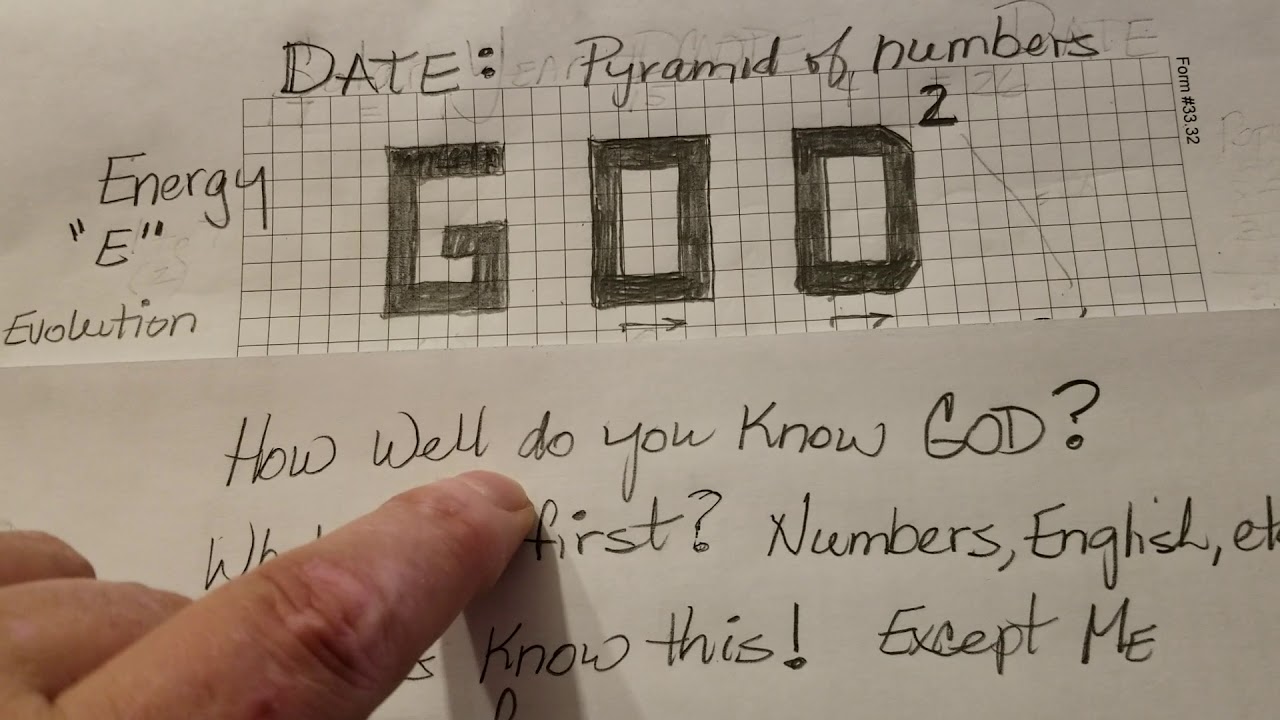 DATE: Pyramid of numbers
Form #33.32
Energy
"E"
Evolution
GOD²
How Well do you Know GOD?
first? Numbers, English,
Know this! Except ME